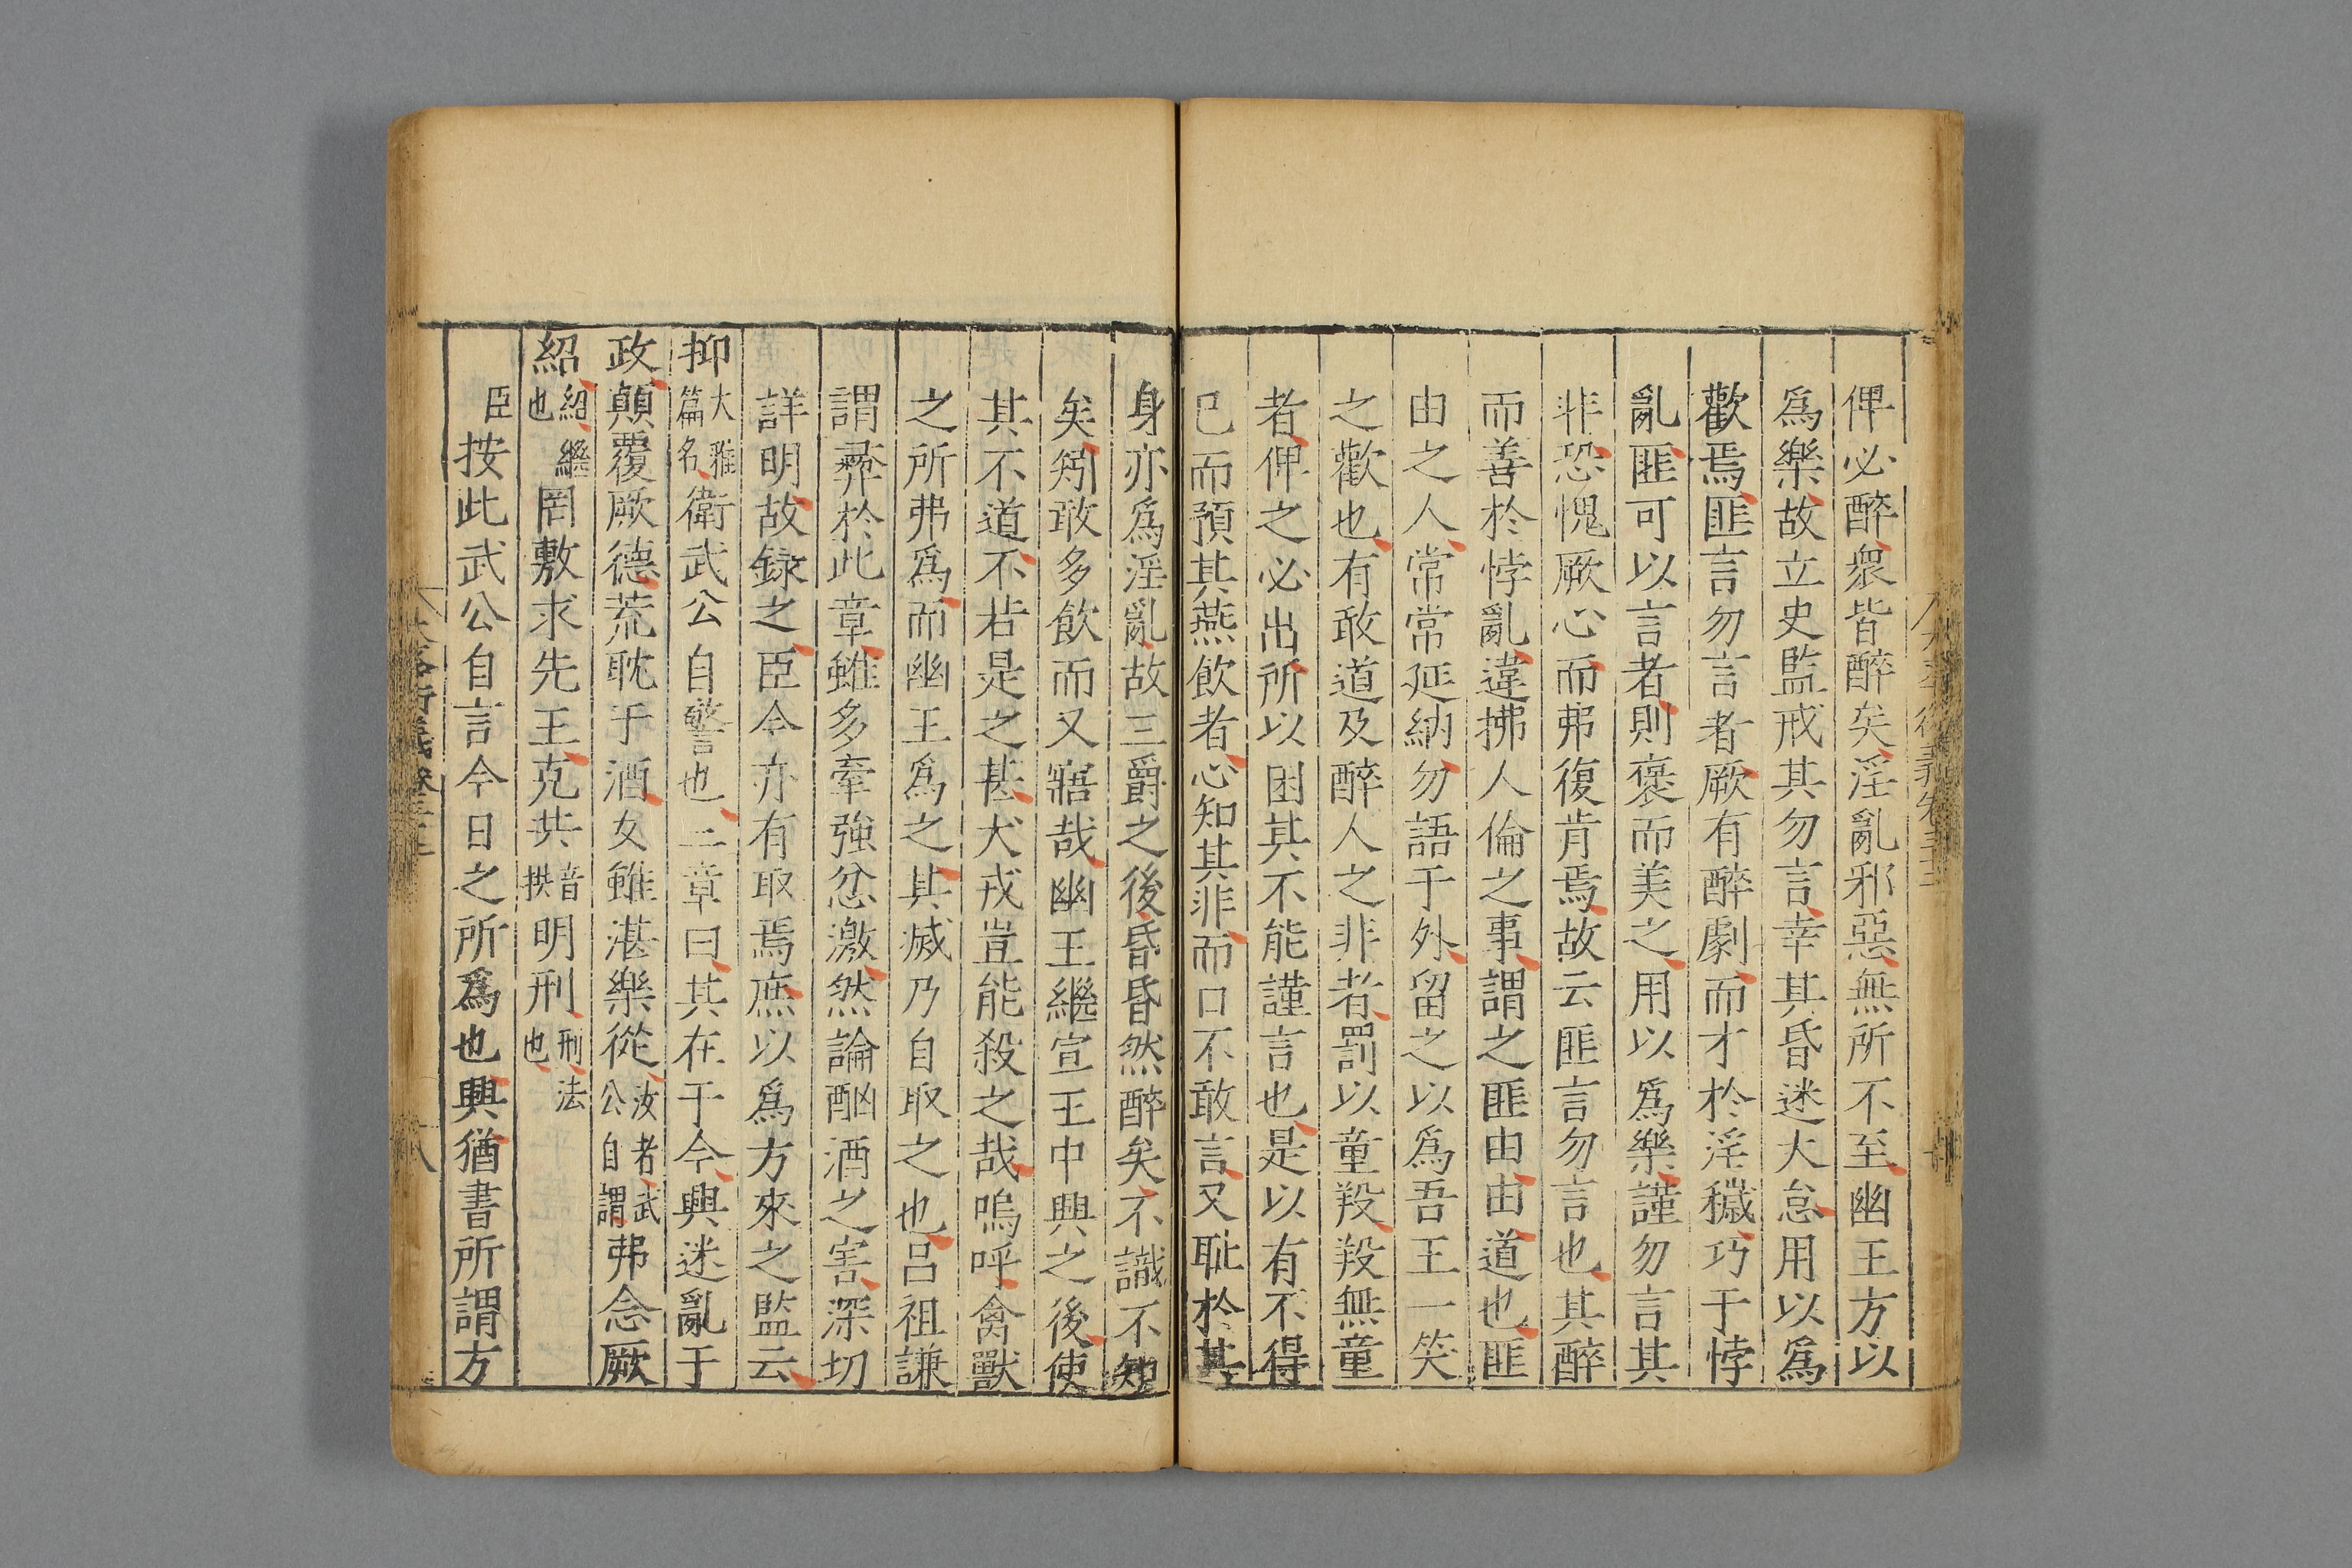 俾必醉衆皆醉矣淫亂邪惡無所不至幽王方以
爲樂故立史監戒其勿言幸其昏迷大怠用以爲
歡焉匪言勿言者厥有醉劇而才於淫穢巧于悖
亂匪可以言者則褒而美之用以爲樂謹勿言其
非恐愧厥心而弗復肯焉故云匪言勿言也其醉
而善於悖亂違拂人倫之事謂之匪由由道也匪
由之人常常延納勿語于外留之以爲吾王一笑
之歡也有敢道及醉人之非者罰以童羖羖無童
者俾之必出所以困其不能謹言也是以有不得
已而預其燕飲者心知其非而口不敢言又恥於其
身亦爲淫亂故三爵之後昏昏然醉矣不識不知
矣矧敢多飲而又寤哉幽王繼宣王中興之後使
其不道不若是之甚犬戎豈能殺之哉嗚呼禽獸
之所弗爲而幽王爲之其滅乃自取之也呂祖謙
謂彝於此章雖多牽強忿激然論酗酒之害深切
詳明故録之臣今亦有取焉庶以爲方來之監云
抑大雅篇名衛武公自警也二章曰其在于今興迷亂于
政顛覆厥德荒耽于酒女雖湛樂從汝者武公自謂弗念厥
紹紹繼也罔敷求先王克共音拱明刑刑法也
臣按此武公自言今日之所爲也興猶書所謂方